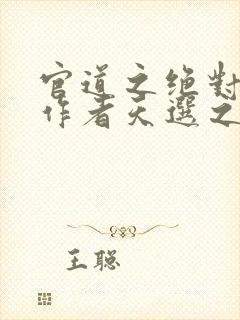 官道之绝對
作者天選之
王聪